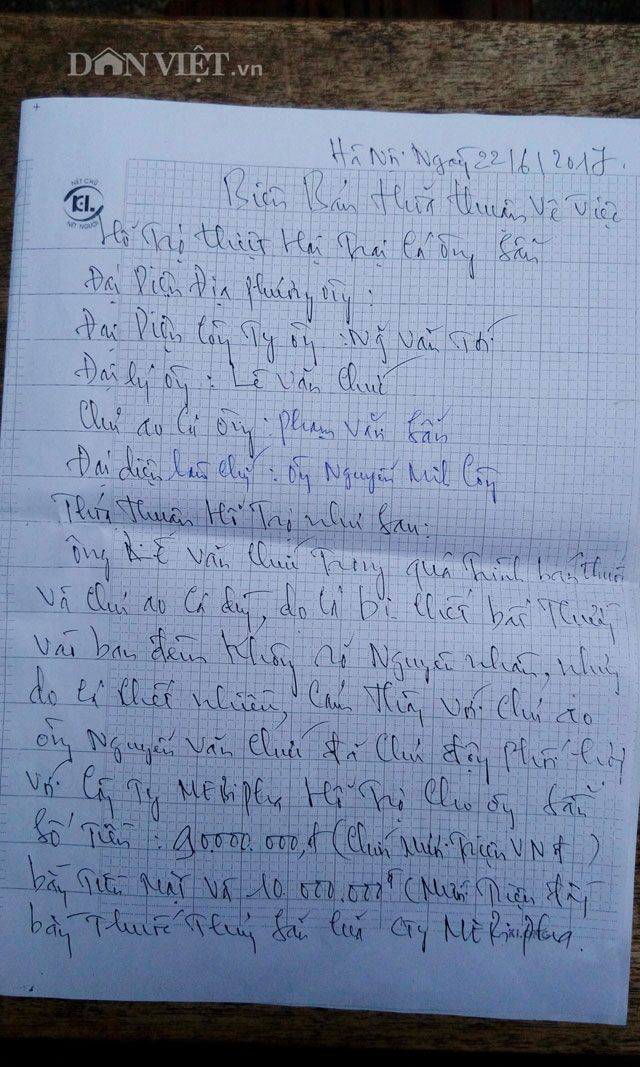 DÂN VIỆT.vn
Hà Nội Ngày 22/6/2017.
Biên Bản thỏa thuận về việc
NÉT CHỮ
KL
NẾT NGƯỜI
Hỗ Trợ thiệt Hại Trại cá ông Sắn
Đại Diện Địa phương ông :
Đại Diện Công Ty ông : Ng Văn
Đại lý ông : Lê Văn Chuế
Chủ ao cá ông : phạm Văn Sắn
Đại diện : ông Nguyễn Công
Thỏa thuận Hỗ Trợ như Sau:
ông Lê Văn Chuế Trong quá Trình bán thuốc
và chủ ao cá dùng, do cá bị chết bất Thường
vào ban đêm không rõ Nguyên nhân, nhưng
do cá chết nhiều, cảm thông với chủ ao
ông Nguyễn Văn Chuế đã chủ động phối hợp
với Công Ty MEBipha Hỗ Trợ cho ông Sắn
Số Tiền : 90.000.000,đ (Chín Mươi Triệu VNđ)
bằng Tiền Mặt và 10.000.000đ (Mười Triệu đồng
bằng Thuốc Thủy Sản của CTy